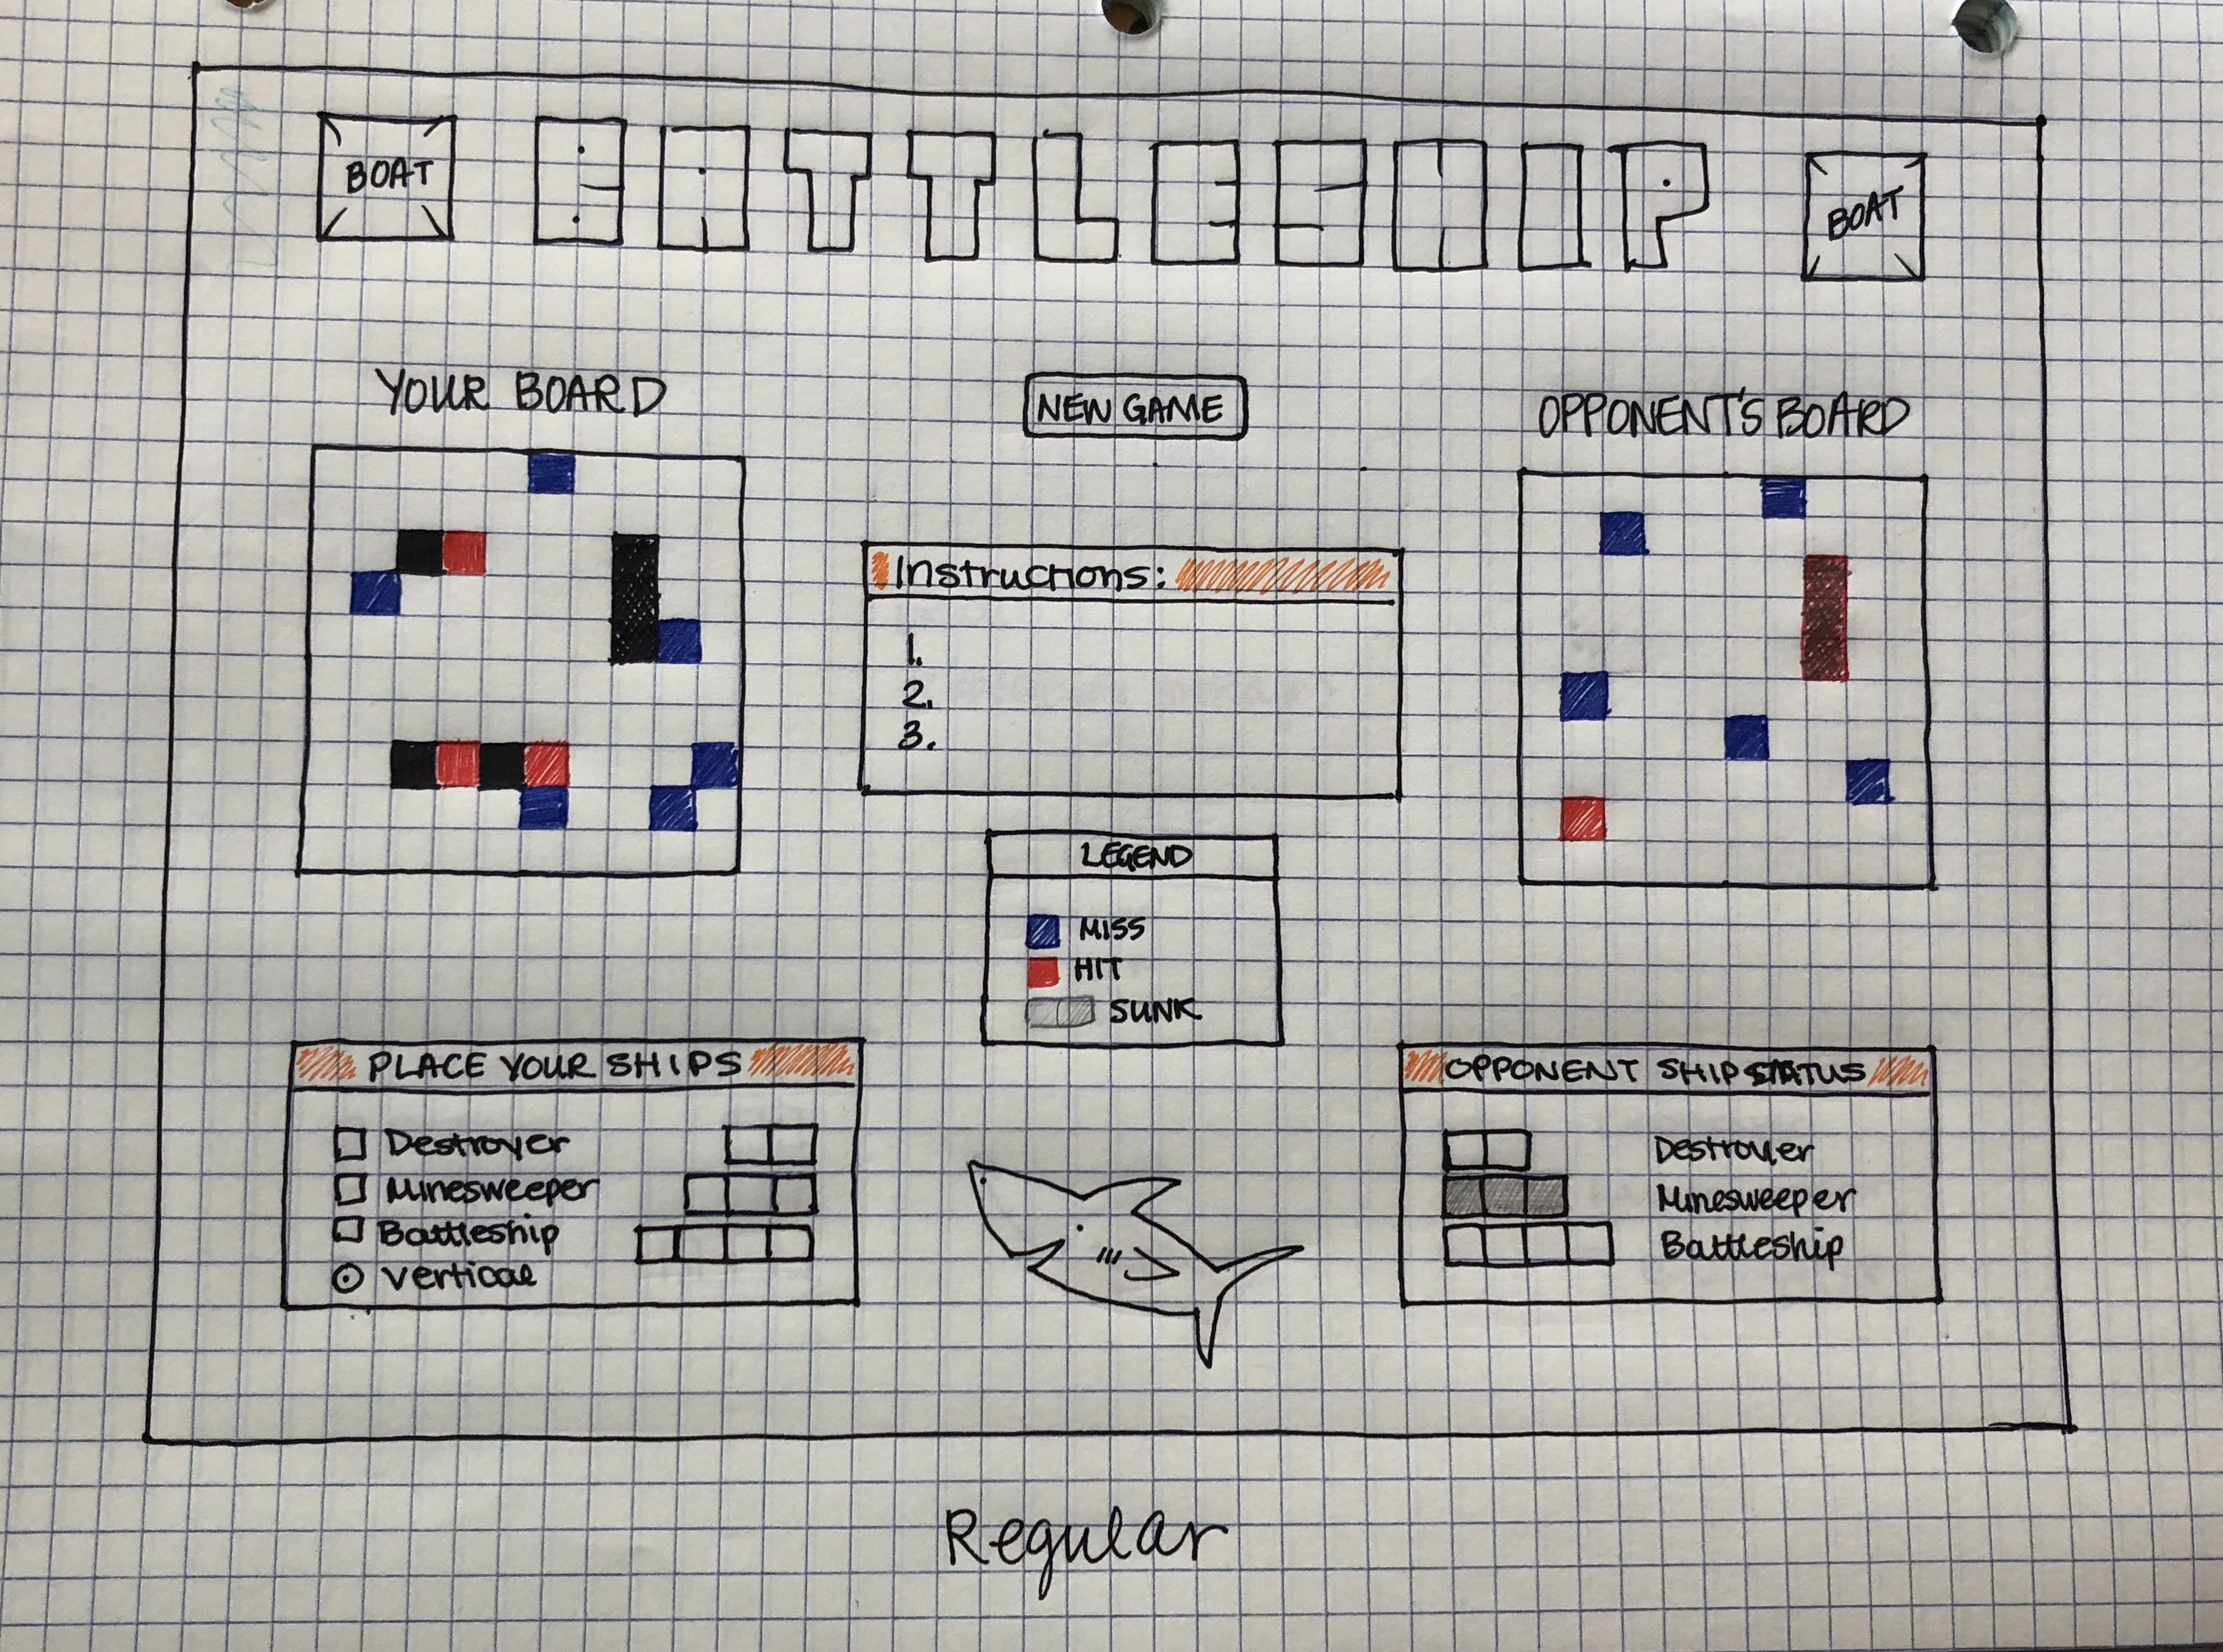 BOAT BATTLESHIP BOAT
YOUR BOARD
NEW GAME
OPPONENT'S BOARD
Instructions:
1.
2.
3.
LEGEND
MISS
HIT
SUNK
PLACE YOUR SHIPS
Destroyer
Minesweeper
Battleship
Vertical
OPPONENT SHIP STATUS
Destroyer
Minesweeper
Battleship
Regular